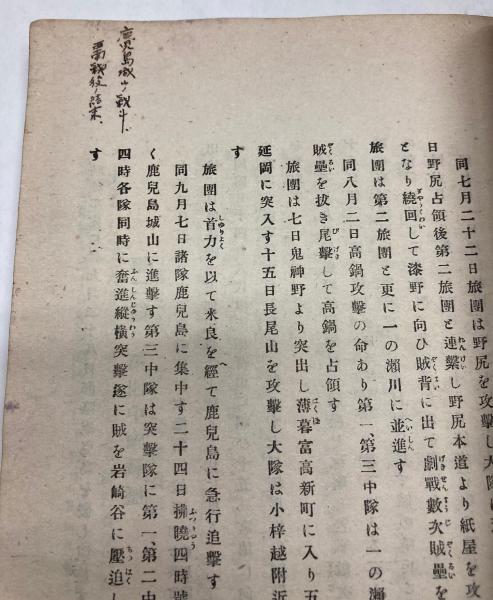 同七月二十二日旅團は野尻を攻
日野尻占領後第二旅團と連繫し野尻本道より紙屋を攻
となり繞回して漆野に向ひ賊背に出て劇戰數次賊壘を
旅團は第二旅團と更に一の瀨川に並進す
同八月二日高鍋攻擊の命あり第一、第三中隊は一の瀨
賊壘を拔き尾擊して高鍋を占領す
旅團は七日鬼神野より突出し薄暮富高新町に入り五
延岡に突入す十五日長尾山を攻擊し大隊は小梓越附近
す
旅團は首力を以て米良を經て鹿兒島に急行追擊す
同九月七日諸隊鹿兒島に集中す二十四日拂曉四時號
く鹿兒島城山に進擊す第三中隊は突擊隊に第一、第二中
四時各隊同時に奮進縱橫突擊遂に賊を岩崎谷に壓迫し
す
鹿児島城ノ戦斗、
西南戦役ノ結末、